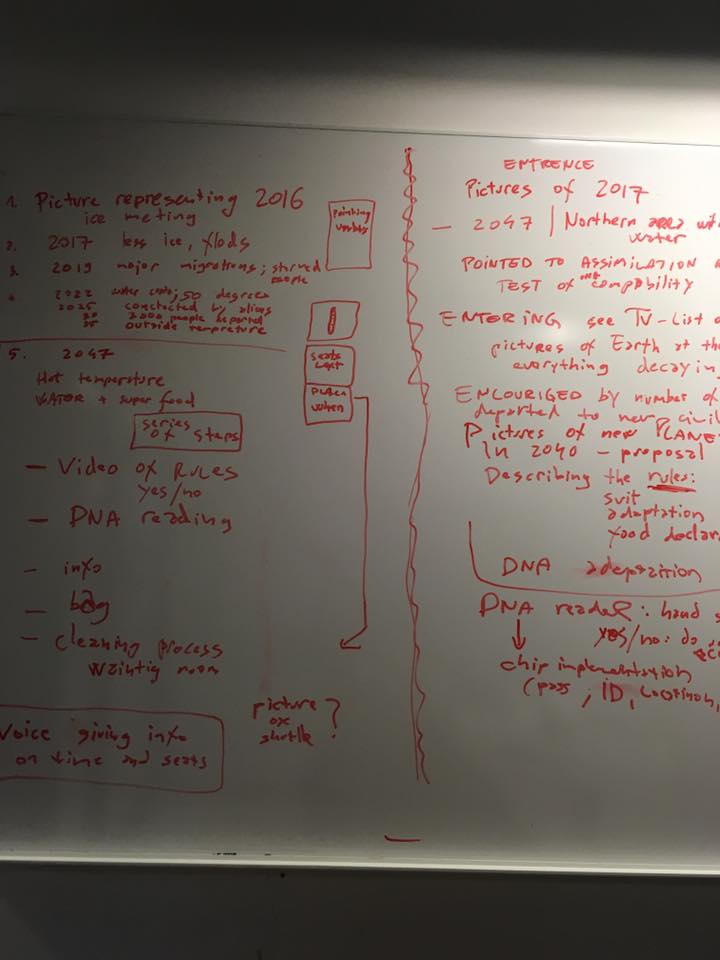 1. Picture representing 2016
ice meting
2. 2017 less ice, flods
3. 2019 major migrations; starved
people
4. 2022 water ; 50 degrees
2025 conctacted by aliens
2000 people deported
outside tempreture
5. 2047
Hot temperature
WATOR + super food
series
of steps
– Video of RULES
yes/no
– DNA reading
– info
– bag
– Cleaning process
Waintig room
Voice giving info
on time and seats
picture
of
shuttle ?
Pointing
seats
left
PLACE
ENTRENCE
Pictures of 2017
– 2047 | Northern area
water
POINTED TO ASSIMILATION
TEST OF compability
ENTERING see TV-List
pictures of Earth at the
everything decaying
ENCOURIGED by number of
departed to new
Pictures of new PLANE
In 2040 – proposal
Describing the rules:
suit
adaptation
food declar
DNA
DNA reader: hand
yes/no: do
chip implementation
(pass, ID, Location,